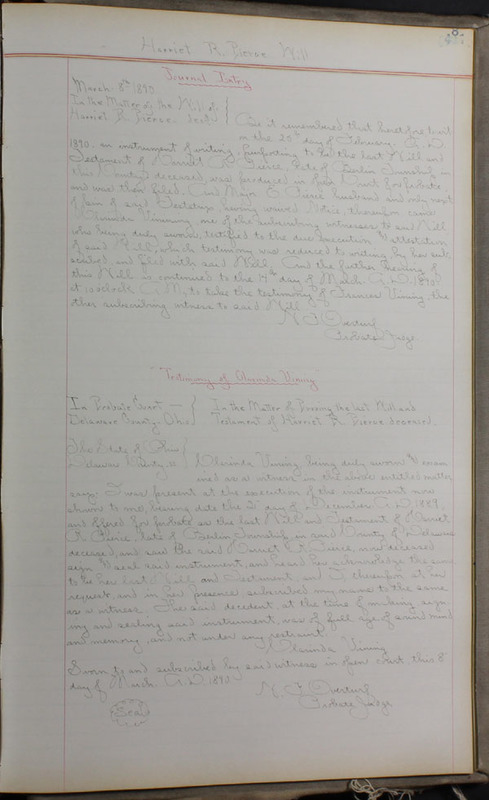 Harriet R. Pierce Will
Journal Entry
March 8th 1890.
In the Matter of the Will of
Harriet R. Pierce. decd.
Be it remembered that heretofore to wit
on the 20th day of February A. D.
1890. an instrument of writing, purporting to be the last Will and
Testament of Harriet R. Pierce, late of Berlin Township in
this County, deceased, was produced in open Court for probate
and was then filed. And E. Pierce husband and only next
of kin of said Testatrix, having waived Notice, thereupon came
Vining, one of the subscribing witnesses to said Will
who being duly sworn, testified to the due execution & attestation
of said Will, which testimony was reduced to writing by her sub-
scribed, and filed with said Will. And the further hearing of
this Will is continued to the day of March. A. D. 1890.
at 10 o'clock A. M., to take the testimony of Vining the
other subscribing witness to said Will.
Probate Judge
Testimony of Vining
In Probate Court
Delaware County, Ohio
In the Matter of Proving the last Will and
Testament of Harriet R. Pierce deceased.
The State of Ohio
Delaware County, ss
Vining being duly sworn & exam
ined as a witness in the above entitled matter
says: I was present at the execution of the instrument now
shown to me, bearing date the day of December A. D. 1889,
and offered for probate as the last Will and Testament of Harriet
R. Pierce, late of Berlin Township, in said County of Delaware
deceased, and saw the said Harriet R. Pierce, now deceased
sign & seal said instrument, and heard her acknowledge the same
to be her last Will and Testament, and I, thereupon at her
request, and in her presence subscribed my name to the same
as a witness. The said decedent, at the time of making sign-
ing and sealing said instrument, was of full age, of sound mind
and memory, and not under any restraint
Vining
Sworn to and subscribed by said witness in open court, this 8
day of March. A. D. 1890.
Probate Judge
Seal